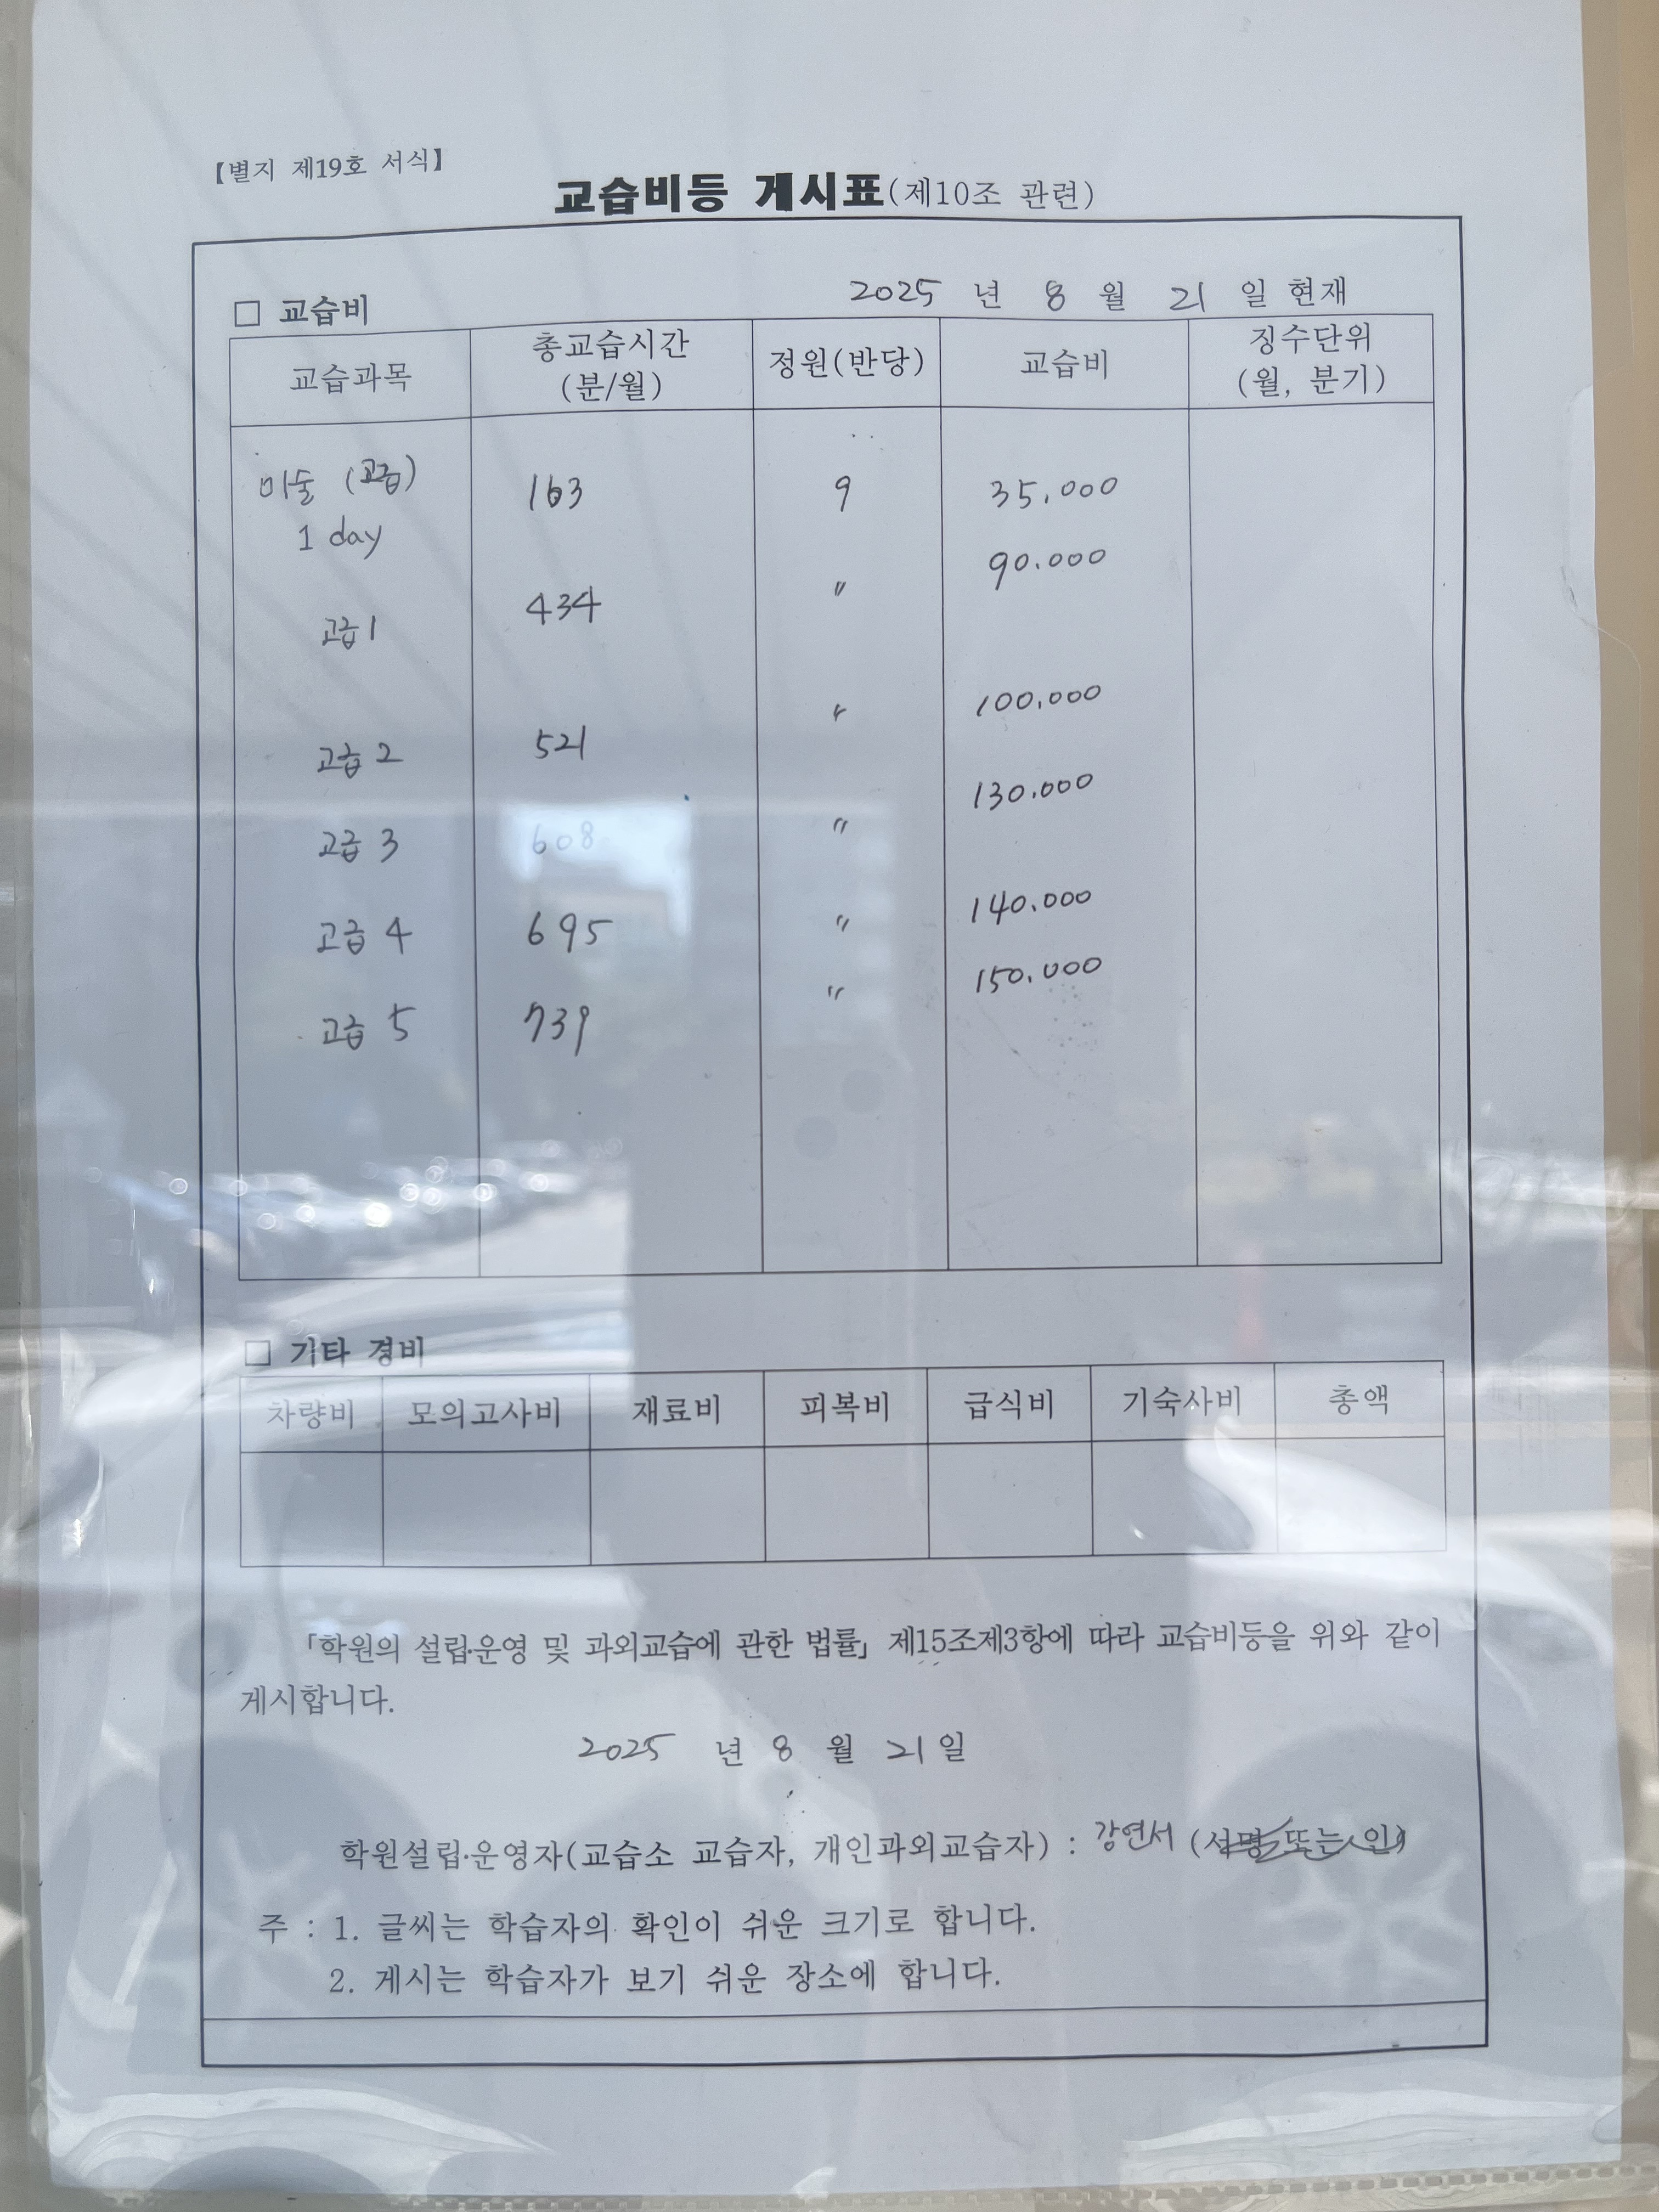 【별지 제19호 서식】
교습비등 게시표(제10조 관련)
□ 교습비 2025 년 8 월 21 일 현재
교습과목 총교습시간 (분/월) 정원(반당) 교습비 징수단위 (월, 분기)
미술 (고급) 163 9 35.000
1 day
고급1 434 〃 90.000
고급 2 521 〃 100.000
고급 3 608 〃 130.000
고급 4 695 〃 140.000
고급 5 739 〃 150.000
□ 기타 경비
차량비 모의고사비 재료비 피복비 급식비 기숙사비 총액
「학원의 설립·운영 및 과외교습에 관한 법률」 제15조제3항에 따라 교습비등을 위와 같이
게시합니다.
2025 년 8 월 21 일
학원설립·운영자(교습소 교습자, 개인과외교습자) : 강연서 (서명 또는 인)
주 : 1. 글씨는 학습자의 확인이 쉬운 크기로 합니다.
2. 게시는 학습자가 보기 쉬운 장소에 합니다.